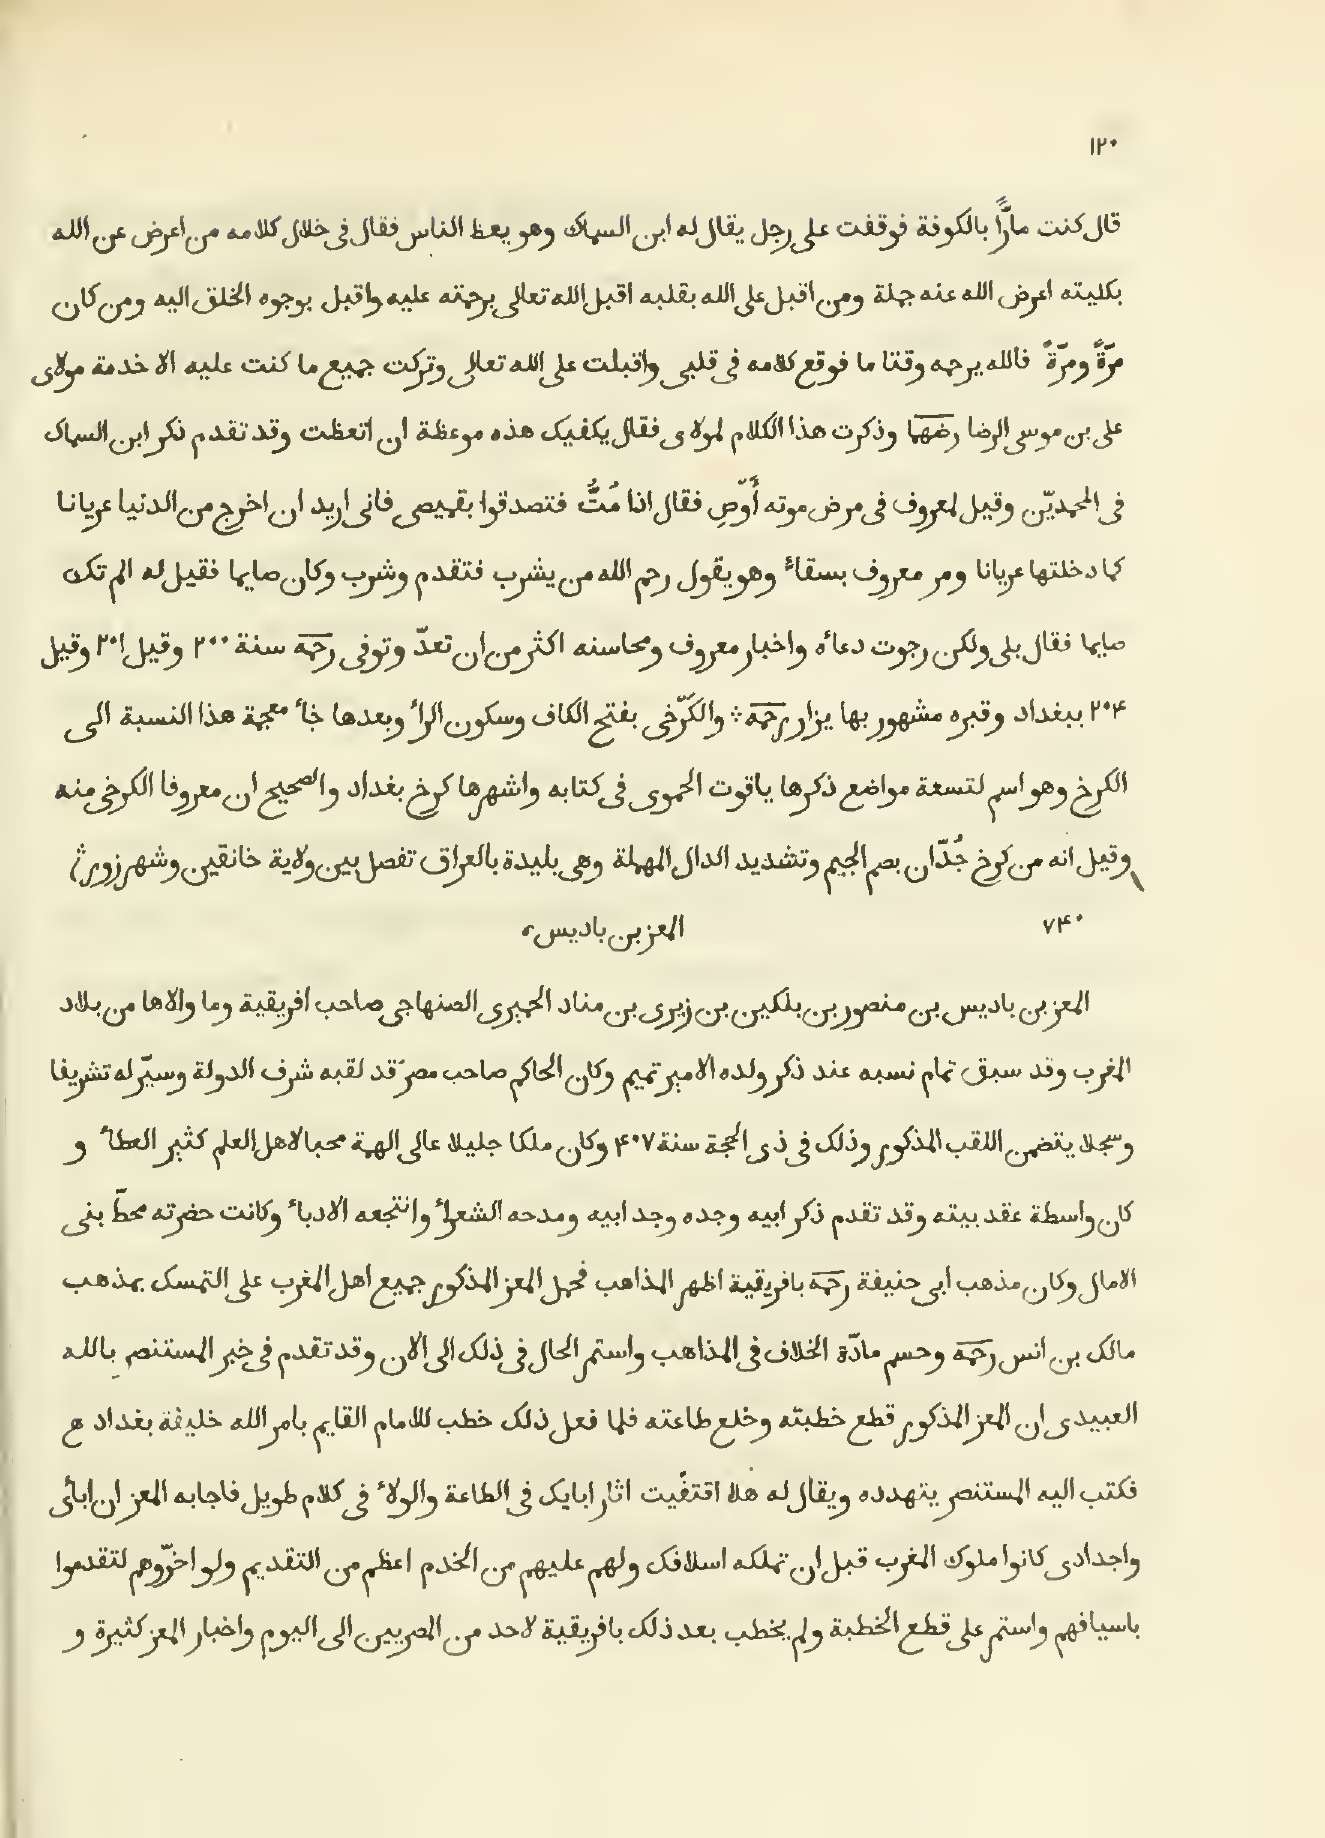 ١٢٠
قال كنت مارًّا بالكوفة فوقفت على رجل يقال له ابن السماك وهو يعظ الناس فقال فى خلال كلامه من اعرض عن الله
بكليته اعرض الله عنه جملة ومن اقبل على الله بقلبه اقبل الله تعالى برحمته عليه واقبل بوجوه الخلق اليه ومن كان
مرّةً ومرّةً فالله يرحمه وقتا ما فوقع كلامه فى قلبى واقبلت على الله تعالى وتركت جميع ما كنت عليه الا خدمة مولاى
على بن موسى الرضا رضهما وذكرت هذا الكلام لمولاى فقال يكفيك هذه موعظة ان اتعظت وقد تقدم ذكر ابن السماك
فى المحمديّن وقيل لمعروف فى مرض موته أَوّصِ فقال اذا مُتُّ فتصدقوا بقميصى فانى اريد ان اخرج من الدنيا عريانا
كما دخلتها عريانا ومر معروف بسقاء وهو يقول رحم الله من يشرب فتقدم وشرب وكان صايما فقيل له الم تكن
صايما فقال بلى ولكن رجوت دعاءه واخبار معروف ومحاسنه اكثر من ان تعدّ وتوفى رحمه سنة ٢٠٠ وقيل ٢٠١ وقيل
٢٠۴ ببغداد وقبره مشهور بها يزار رحمه ∴ والكَرْخى بفتح الكاف وسكون الراء وبعدها خاء معجمة هذا النسبة الى
الكرخ وهو اسم لتسعة مواضع ذكرها ياقوت الحموى فى كتابه واشهرها كرخ بغداد والصحيح ان معروفا الكرخى منه
وقيل انه من كرخ جُدّان بضم الجيم وتشديد الدال المهملة وهى بليدة بالعراق تفصل بين ولاية خانقين وشهرزور ∴
٧۴٠
المعز بن باديس
المعز بن باديس بن منصور بن بلكين بن زيرى بن مناد الحميرى الصنهاجى صاحب افريقية وما والاها من بلاد
المغرب وقد سبق تمام نسبه عند ذكر ولده الامير تميم وكان الحاكم صاحب مصر قد لقبه شرف الدولة وسيّر له تشريفا
وسجلا يتضمن اللقب المذكور وذلك فى ذى الحجة سنة ۴٠٧ وكان ملكا جليلا عالى الهمة محبا لاهل العلم كثير العطاء و
كان واسطة عقد بيته وقد تقدم ذكر ابيه وجده وجد ابيه ومدحه الشعراء وانتجعه الادباء وكانت حضرته محطّ بنى
الامال وكان مذهب ابى حنيفة رحمه بافريقية اظهر المذاهب فحمل المعز المذكور جميع اهل المغرب على التمسك بمذهب
مالك بن انس رحمه وحسم مادّة الخلاف فى المذاهب واستمر الحال فى ذلك الى الان وقد تقدم فى خبر المستنصر بالله
العبيدى ان المعز المذكور قطع خطبته وخلع طاعته فلما فعل ذلك خطب للامام القايم بامر الله خليفة بغداد
فكتب اليه المستنصر يتهدده ويقال له هلا اقتفيت اثار ابايك فى الطاعة والولاء فى كلام طويل فاجابه المعز ان ابائى
واجدادى كانوا ملوك المغرب قبل ان تملكه اسلافك ولهم عليهم من الخدم اعظم من التقديم ولو اخّروهم لتقدموا
باسيافهم واستمر على قطع الخطبة ولم يخطب بعد ذلك بافريقية لاحد من المصريين الى اليوم واخبار المعز كثيرة و